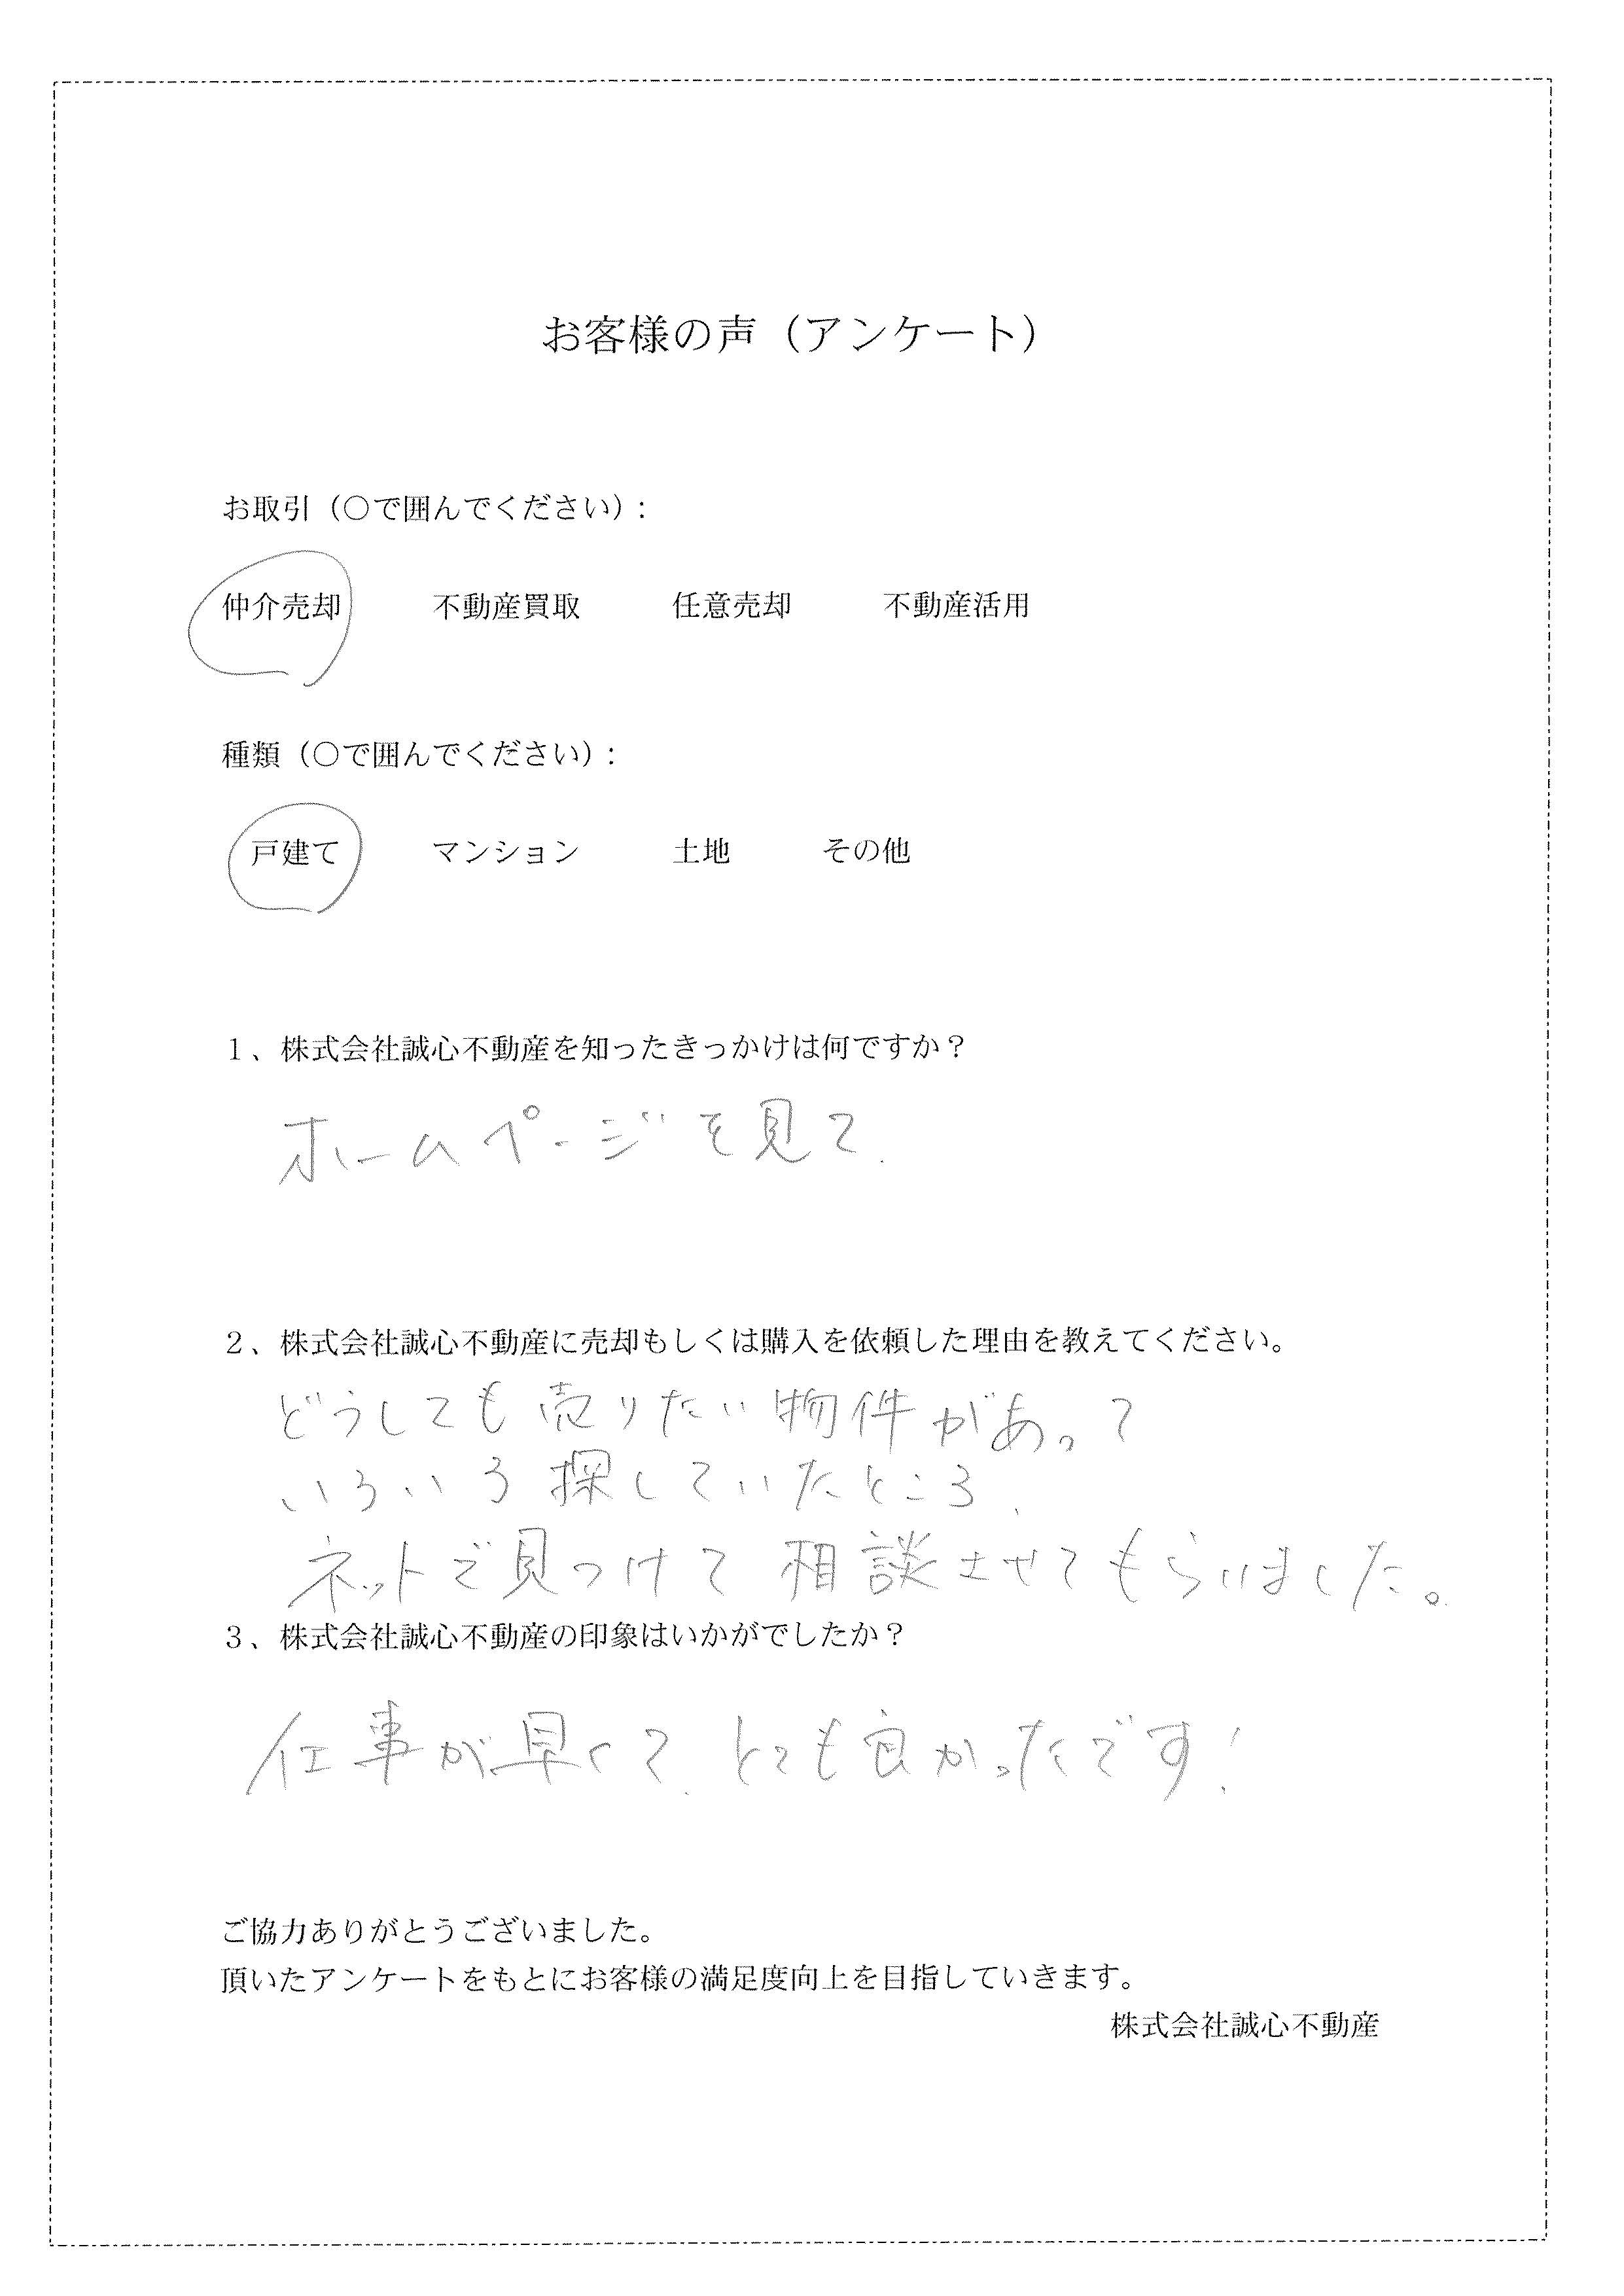 お客様の声（アンケート）
お取引（○で囲んでください）：
仲介売却　不動産買取　任意売却　不動産活用
種類（○で囲んでください）：
戸建て　マンション　土地　その他
１、株式会社誠心不動産を知ったきっかけは何ですか？
ホームページを見て．
２、株式会社誠心不動産に売却もしくは購入を依頼した理由を教えてください。
どうしても売りたい物件があって
いろいろ探していたところ、
ネットで見つけて相談させてもらいました。
３、株式会社誠心不動産の印象はいかがでしたか？
仕事が早くて、とても良かったです！
ご協力ありがとうございました。
頂いたアンケートをもとにお客様の満足度向上を目指していきます。
株式会社誠心不動産